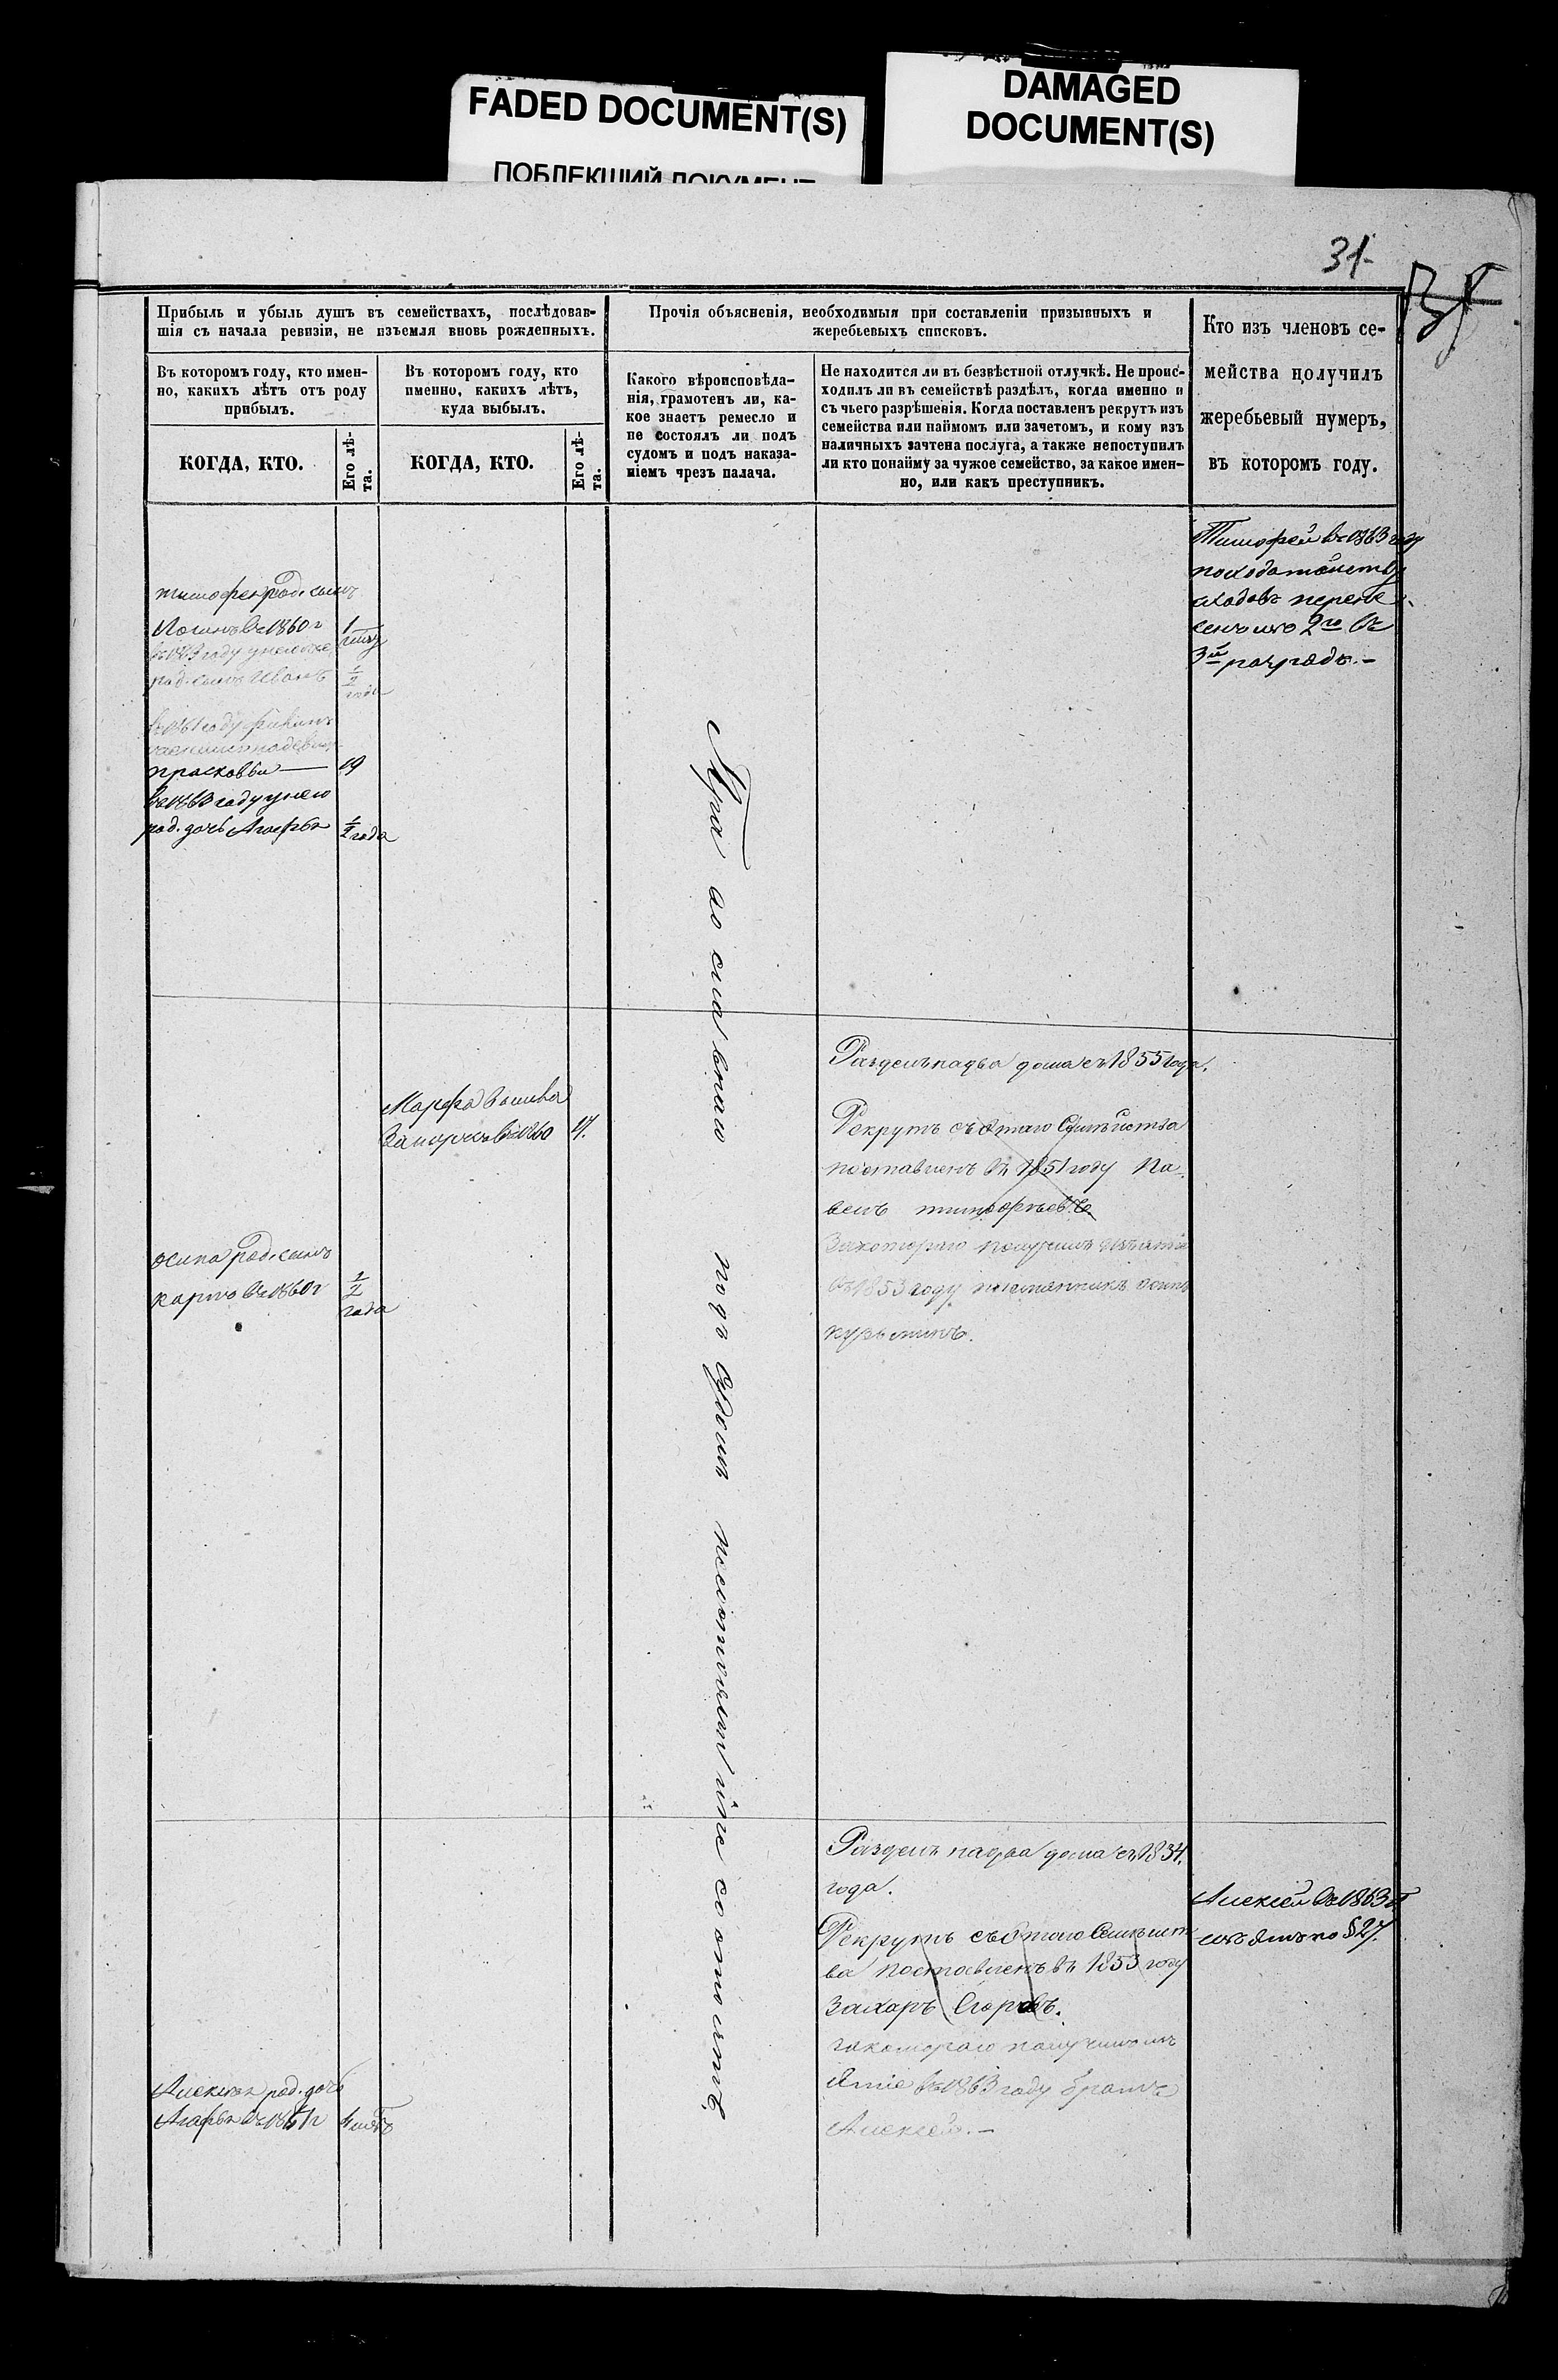 FADED DOCUMENT(S)
ПОБЛЕКШИЙ ДОКУМЕНТ
DAMAGED
DOCUMENT(S)
31
Прибыль и убыль душъ въ семействахъ, послѣдовав-
шія съ начала ревизіи, не изъемля вновь рожденныхъ.
Въ которомъ году, кто имен-
но, какихъ лѣтъ отъ роду
прибылъ.
КОГДА, КТО.
Его лѣ-
та.
Въ которомъ году, кто
именно, какихъ лѣтъ,
куда выбылъ.
КОГДА, КТО.
Его лѣ-
та.
Прочія объясненія, необходимыя при составленіи призывныхъ и
жеребьевыхъ списковъ.
Какого вѣроисповѣда-
нія, грамотенъ ли, ка-
кое знаетъ ремесло и
не состоялъ ли подъ
судомъ и подъ наказа-
ніемъ чрезъ палача.
Не находится ли въ безвѣстной отлучкѣ. Не проис-
ходилъ ли въ семействѣ раздѣлъ, когда именно и
съ чьего разрѣшенія. Когда поставленъ рекрутъ изъ
семейства или наймомъ или зачетомъ, и кому изъ
наличныхъ зачтена послуга, а также непоступилъ
ли кто понайму за чужое семейство, за какое имен-
но, или какъ преступникъ.
Кто изъ членовъ се-
мейства получилъ
жеребьевый нумеръ,
въ которомъ году.
Тимофей въ 1863 году
по ходатайству
перене
сенъ изо 2го въ
3й разрядъ.-
род. сынъ
въ 1860 г
въ 1863 году у него же
род. сынъ Иванъ
1/2
года
Прасковьи — 19
въ 1863 году у него
род. дочь Агафья
1/2 года
Марфа вышла
въ 1860
17.
Осипа род. сынъ
Карпъ въ 1860 г
1/2
года
Православнаго
подъ судомъ несостоялъ и не состоитъ
Раздѣлъ на два дома съ 1855 года.
Рекрутъ съ этаго Семейства
поставленъ въ 1851 году Па-
велъ Тимофеевъ
За котораго получилъ
въ 1853 году племянникъ Осипъ
Кузьминъ.
Раздѣлъ на два дома съ 1834.
года.
Рекрутъ съ этаго Семейст
ва поставленъ въ 1853 году
Захаръ Егоровъ.
за котораго получилъ
въ 1863 году братъ
Алексей.-
Алексей въ 1863 г
по § 27.
Алексея род. дочь
Агафья въ 1861 г